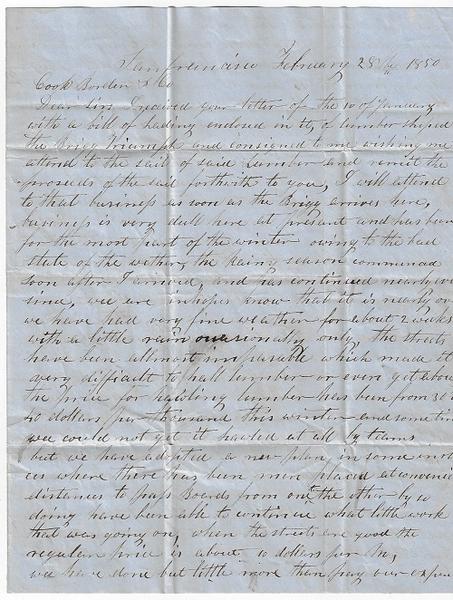 Sanfrancisco February 28th 1850
Cook Borden & Co
Dear Sirs I received your letter of the 10 of January
with a bill of Lading enclosed in it, of lumber shiped
the Brigg Triumph and consigned to me wishing me
attend to the sail of said Lumber and remit the
proseeds of the sail forthwith to you, I will attend
to that business as soon as the Brigg arives here,
business is very dull here at present and has been
for the most part of the winter owing to the bad
state of the wether, the Rainy season commenced
soon after I arived, and has continued nearly ever
since, we are in hopes know that it is nearly over
we have had very fine weather for about 2 weeks
with a little rain occasionally only, the streets
have been allmost impasable which made it
very difficult to hall lumber or even get about
the price for hawling lumber has been from 30 to
40 dollars per thousand this winter and some times
we could not get it hawled at all by teams
but we have adopted a new plan in some instan
ces where there has been men placed at convenient
distances to pass Boards from one to the other by so
doing have been able to continue what little work
that was going on, when the streets are good the
regular price is about 10 dollars per M,
we have done but little more than pay our expen